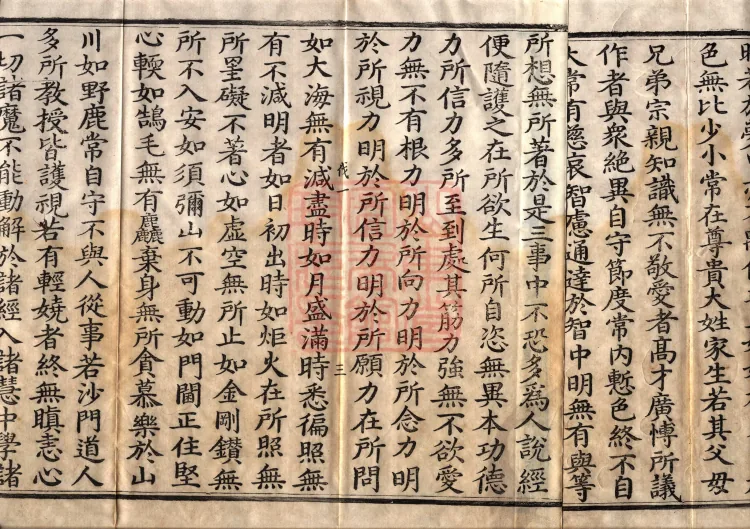 色無比少小常在尊貴大姓家生若其父母
兄弟宗親知識無不敬愛者高才廣愽所議
作者與衆絶異自守節度常内慙色終不自
大常有慈哀智慮通達於智中明無有與等
所想無所著於是三事中不恐多爲人說經
便隨護之在所欲生何所自恣無異本功德
力所信力多所至到處其筋力強無不欲愛
力無不有根力明於所向力明於所念力明
於所視力明於所信力明於所願力在所問
伐一 三
如大海無有減盡時如月盛滿時悉徧照無
有不減明者如日初出時如炬火在所照無
所罣礙不著心如虚空無所止如金剛鑽無
所不入安如須彌山不可動如門閫正住堅
心輭如鵠毛無有麤棄身無所貪慕樂於山
川如野鹿常自守不與人從事若沙門道人
多所教授皆護視若有輕嬈者終無瞋恚心
一切諸魔不能動解於諸經入諸慧中學諸